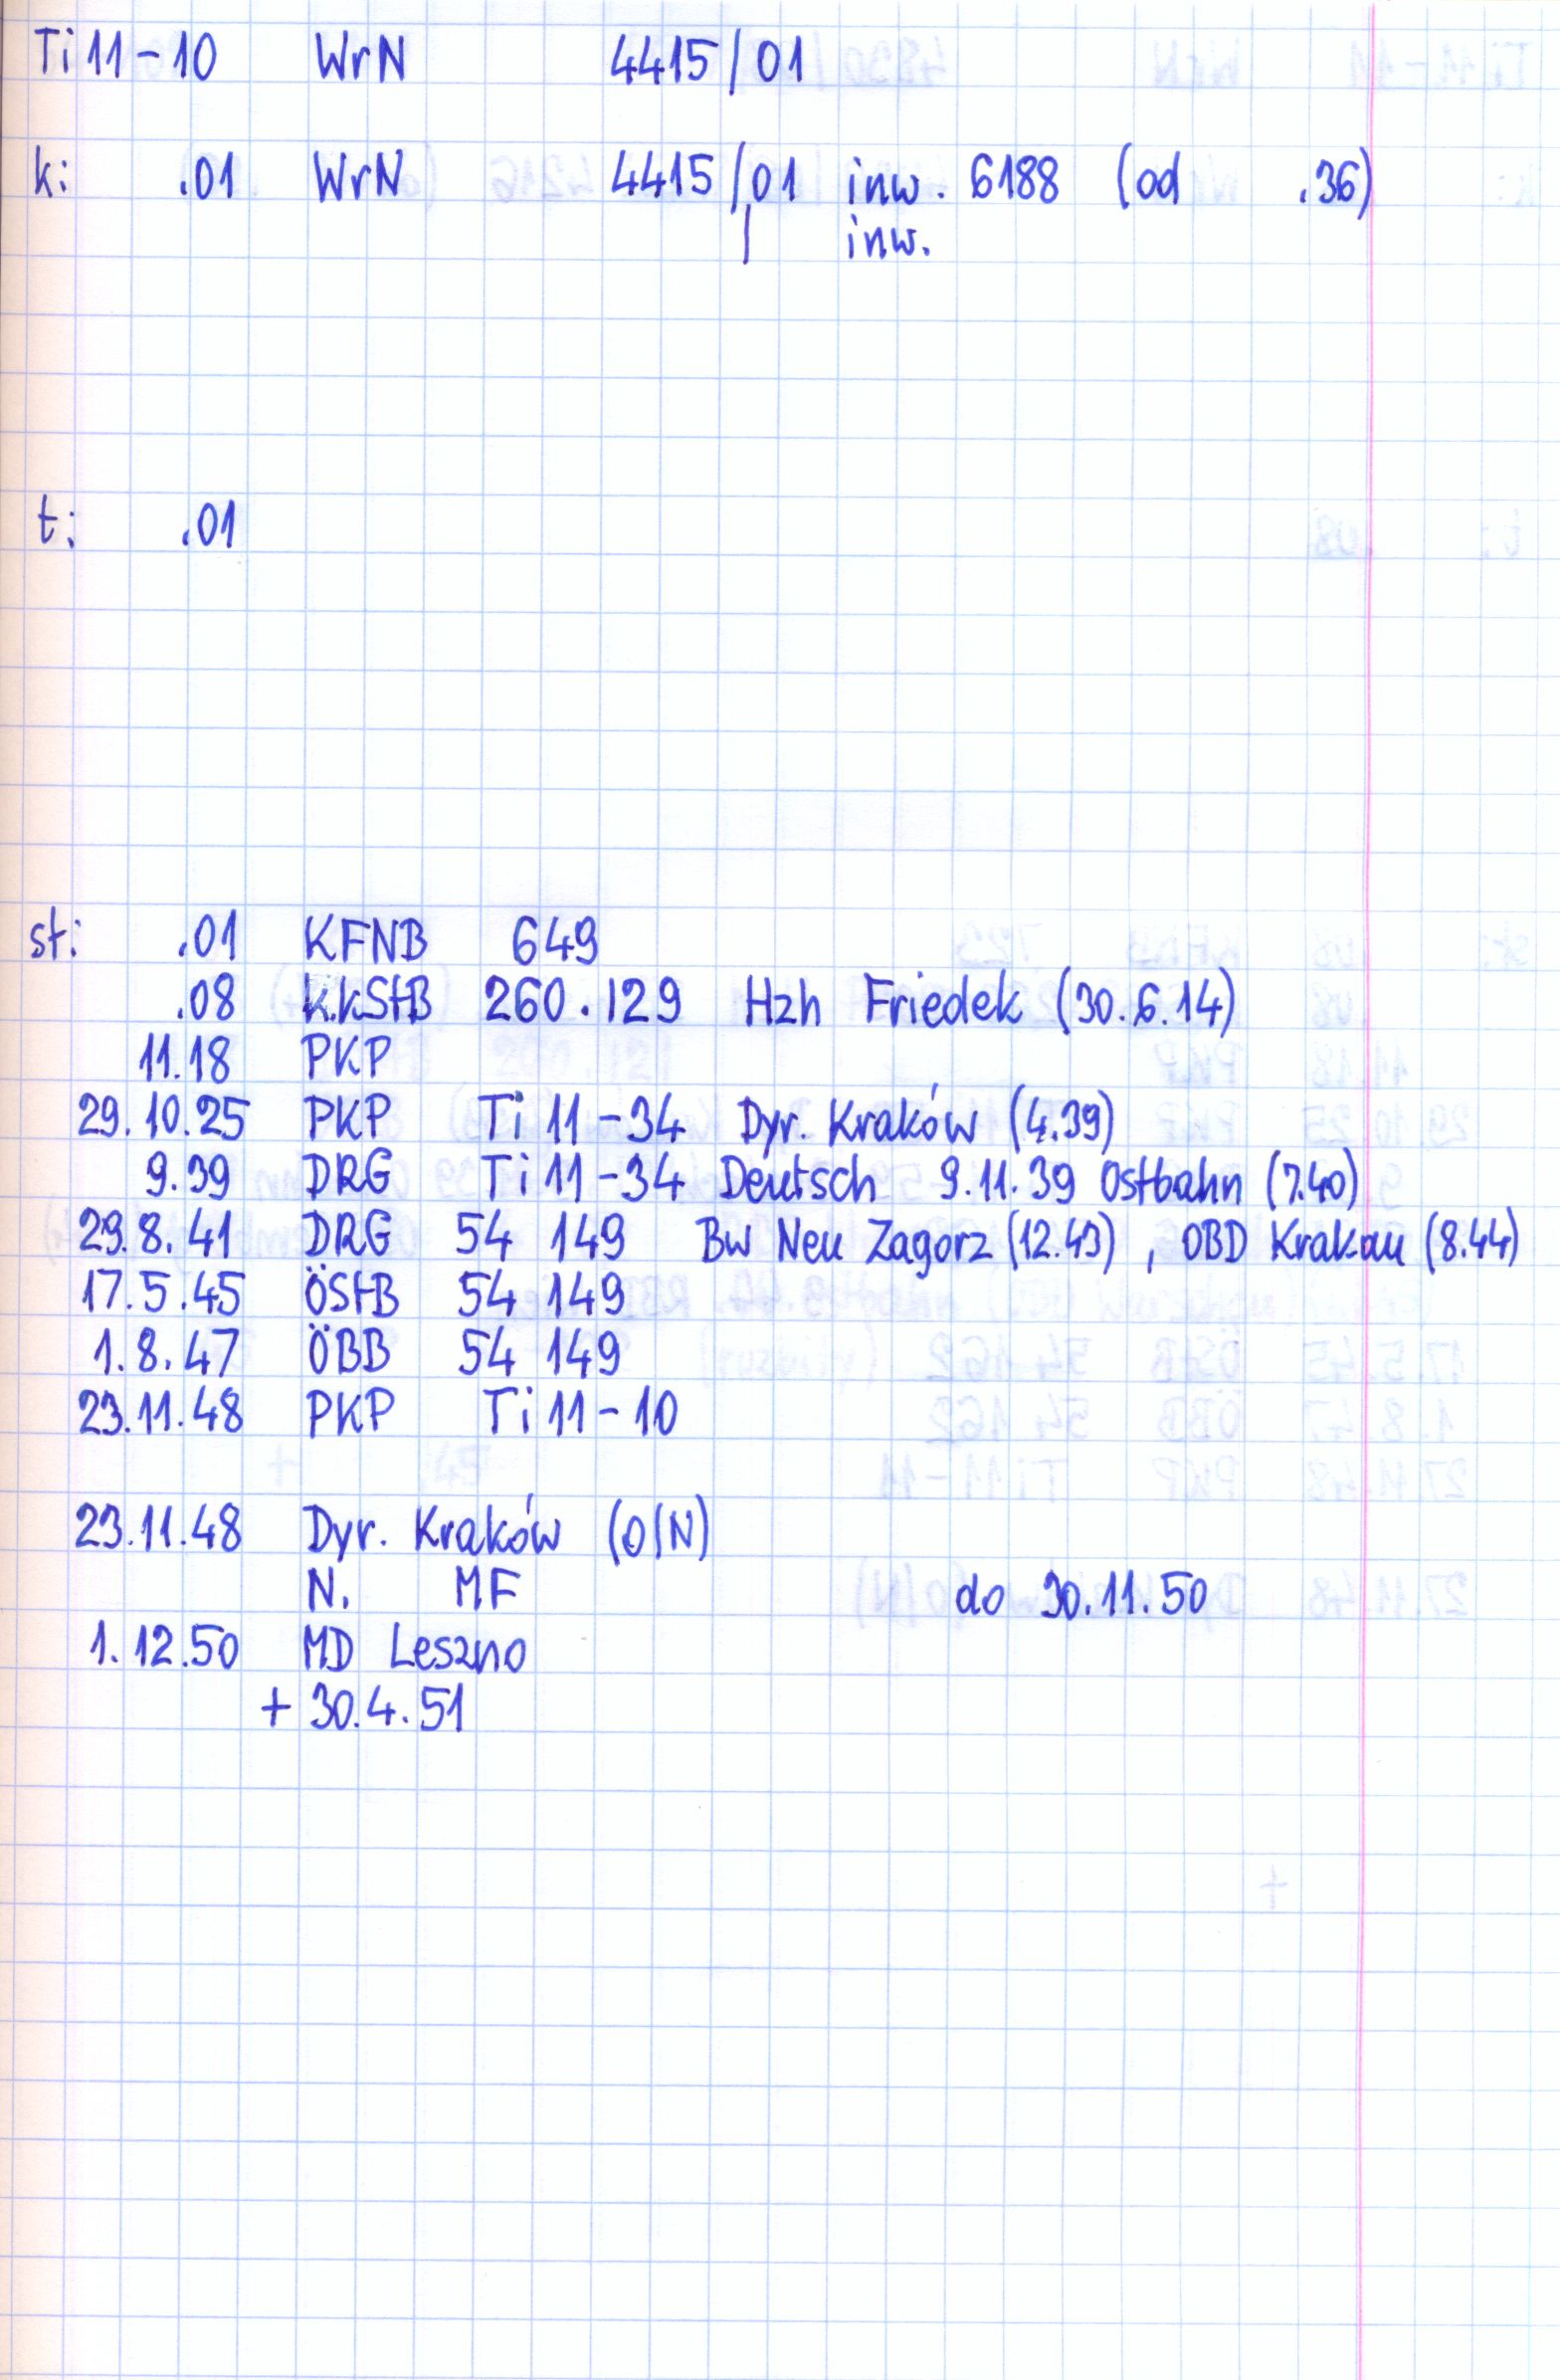 Ti 11-10 WrN 4415/01
k: .01 WrN 4415/01 inw. 6188 (od .36)
/ inw.
t: .01
st: .01 KFNB 649
.08 K.k.StB 260.129 Hzh Friedek (30.6.14)
11.18 PKP
29.10.25 PKP Ti 11-34 Dyr. Kraków (4.39)
9.39 DRG Ti 11-34 Deutsch 9.11.39 Ostbahn (7.40)
29.8.41 DRG 54 149 Bw Neu Zagorz (12.43), OBD Krakau (8.44)
17.5.45 ÖStB 54 149
1.8.47 ÖBB 54 149
23.11.48 PKP Ti 11-10
23.11.48 Dyr. Kraków (O/N)
N. MF do 30.11.50
1.12.50 MD Leszno
+ 30.4.51